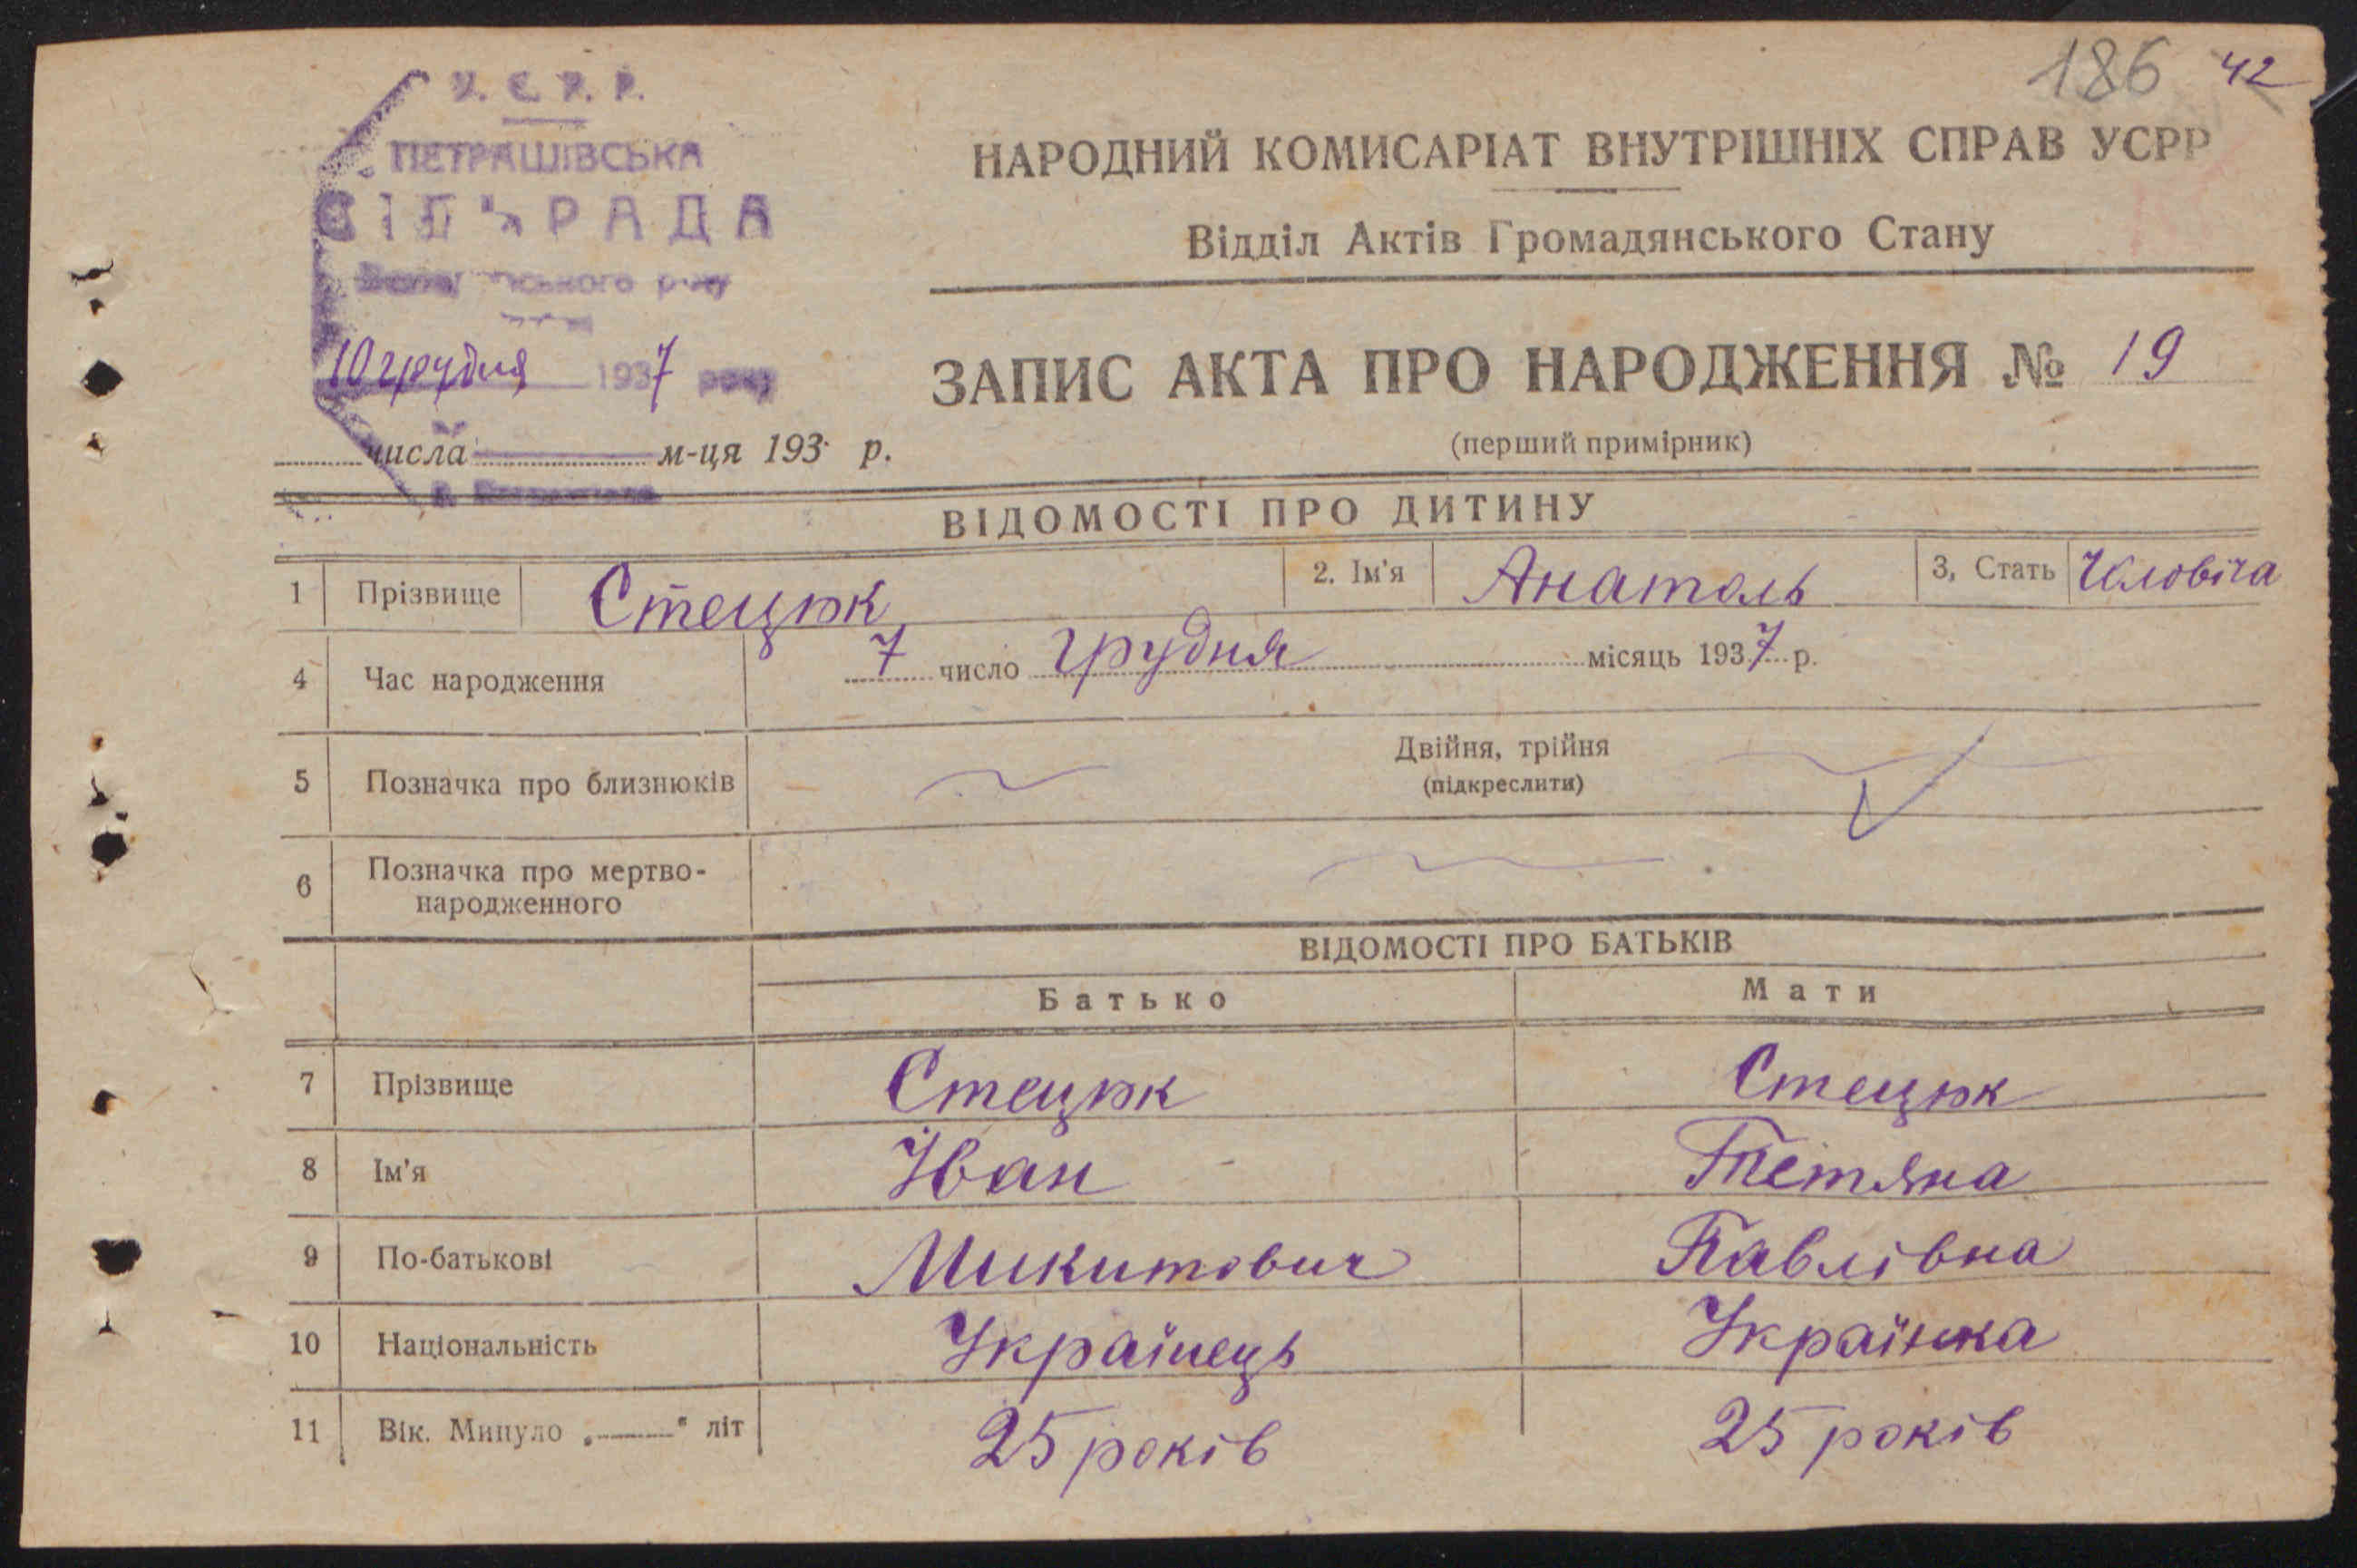 186 42
У. С. Р. Р.
ПЕТРАШІВСЬКА
СІЛЬРАДА
10 грудня 1937 року
числа м-ця 193 р.
НАРОДНИЙ КОМИСАРІАТ ВНУТРІШНІХ СПРАВ УСРР
Відділ Актів Громадянського Стану
ЗАПИС АКТА ПРО НАРОДЖЕННЯ № 19
(перший примірник)
ВІДОМОСТІ ПРО ДИТИНУ
1 Прізвище Стецюк 2. Ім'я Анатоль 3, Стать Чоловіча
4 Час народження 7 число грудня місяць 1937 р.
5 Позначка про близнюків Двійня, трійня
(підкреслити)
6 Позначка про мертво-
народженного
ВІДОМОСТІ ПРО БАТЬКІВ
Батько Мати
7 Прізвище Стецюк Стецюк
8 Ім'я Іван Тетяна
9 По-батькові Микитович Павлівна
10 Національність Українець Українка
11 Вік. Минуло „ " літ 25 років 25 років